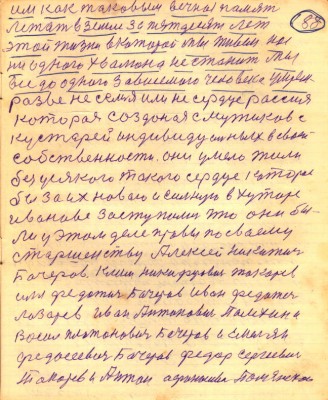 88
им как таковым вечна память
лежать в земли За пятдесят лет
этой жизни в которой мы живем нас
ни одного хвалона не станит мы
все до одного Зависемого человека умрем
разве не семя или не сердце рассия
которая создоная с мутиков с
кустарей индивидуальных в своей
собственности они умело жили
без усякого такого сердце которое
бы за их новаго и сильную в хуторе
иванове Заступалис то они бы-
ли у этом деле правы по своему
старшенству Алексей никитич
Бочаров Клим никифорович токарев
илл федотич Бочаров иван федотич
лазарев иван Антонович Паликин
Васил платонович Бочаров Емельян
федосеевич Бочаров федар Сергеевич
Токарев Антон